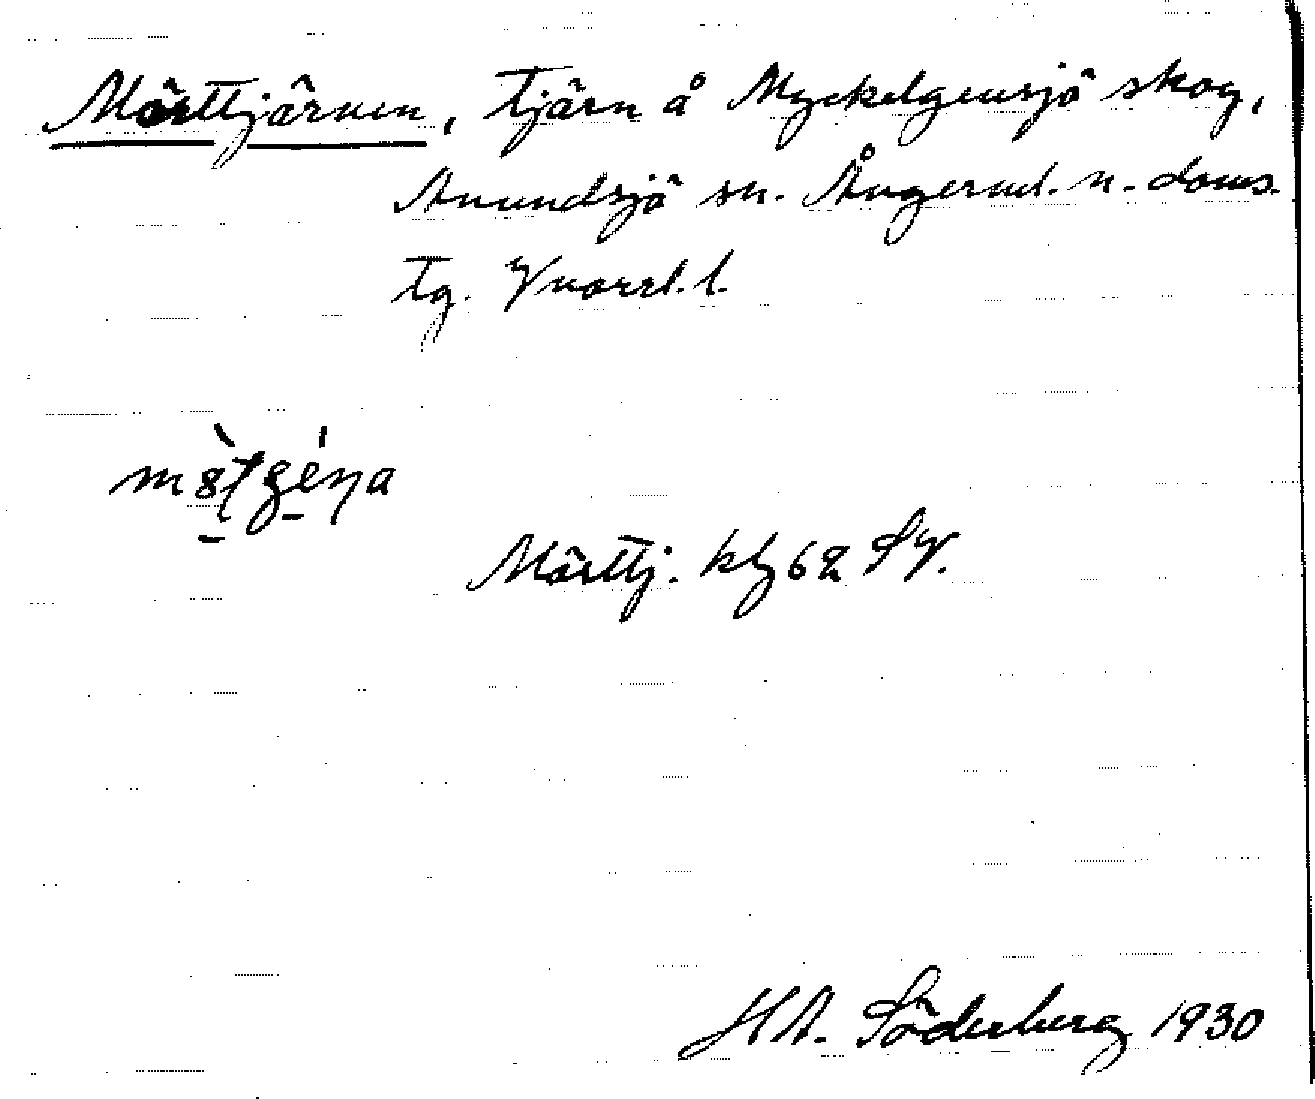 Mörttjärnen, tjärn å Myckelgensjö skog,
Anundsjö sn. Ångerml. n. doms.
tg. Vnorrl. l.
Mörttj. kbl 62 SV.
H A. Söderberg 1930